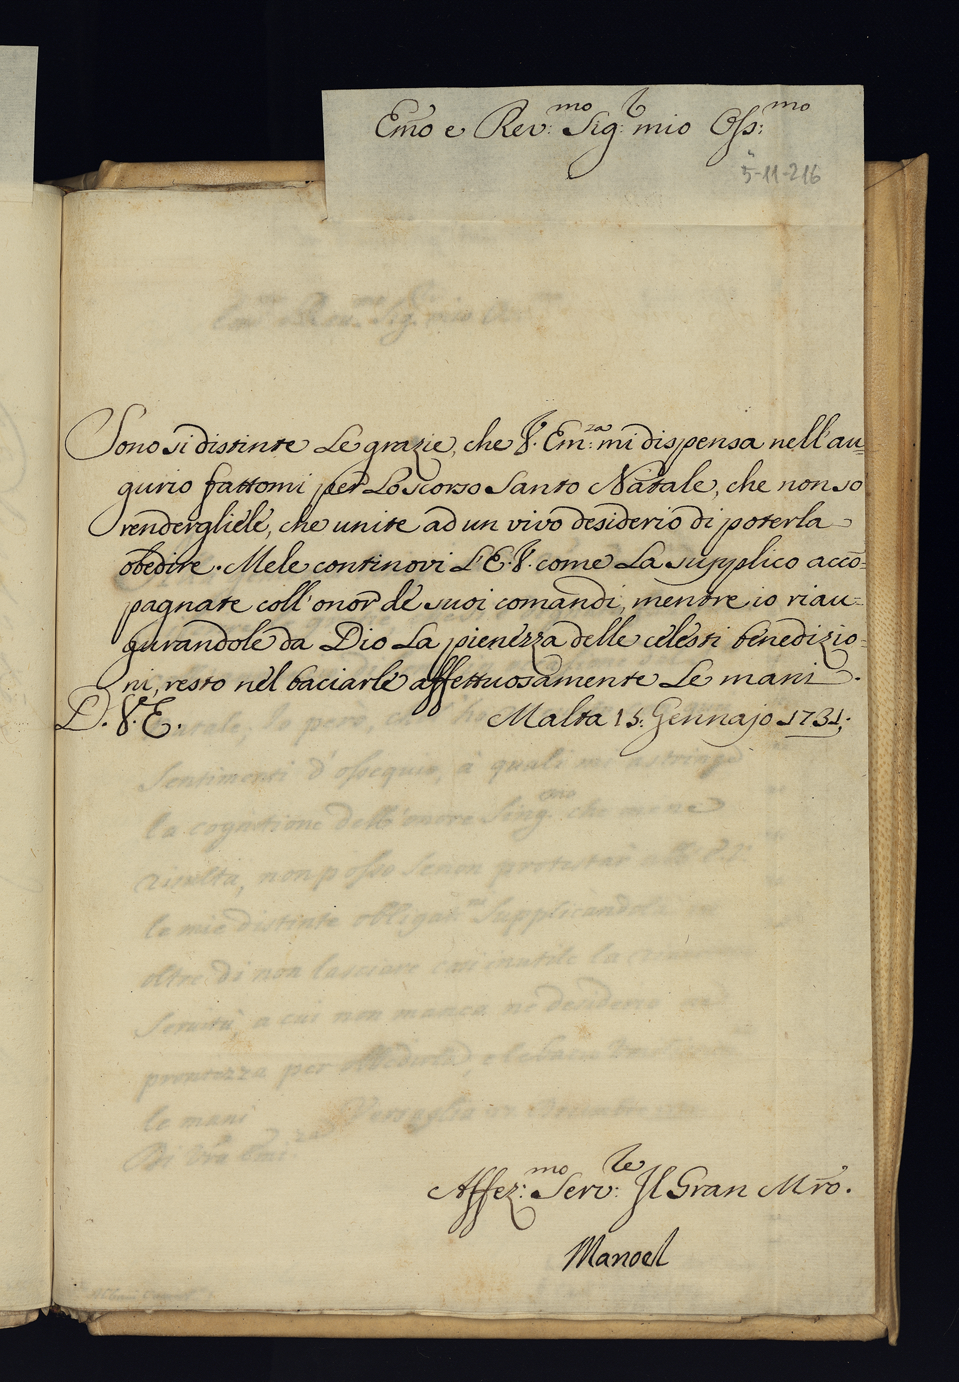 Em̄o e Rev:mo Sig:r mio Oss:mo
5-11-216
Sono sì distinte Le grazie, che V. Em:za mi dispensa nell'au=
gurio fattomi per Lo scorso Santo Natale, che non so
rendergliele, che unite ad un vivo desiderio di poterla
obedire. Mele continovi L'E.V. come La supplico accō=
pagnate coll'onor de suoi comandi, mentre io riau=
gurandole da Dio La pienezza delle celesti benedizio=
ni, resto nel baciarle affettuosamente Le mani.
D. V. E. Malta 15. Gennajo 1731.
Affez:mo Serv:te Il Gran Mr̃o.
Manoel